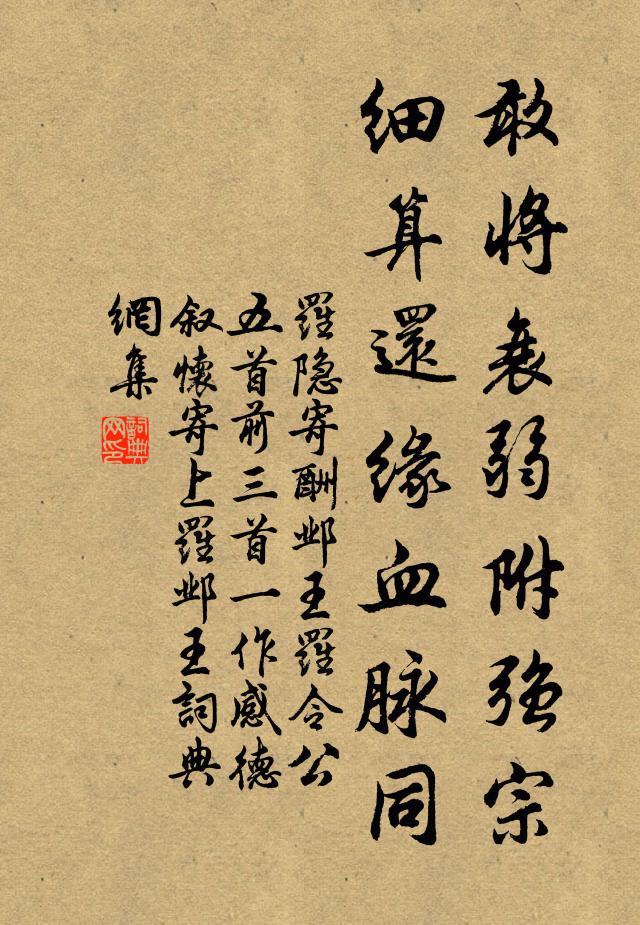 敢將衰弱附強宗
細算還緣血脉同
羅隐寄酬邺王羅令公
五首前三首一作感德
叙懷寄上羅邺王詞典
網集
詞典網印